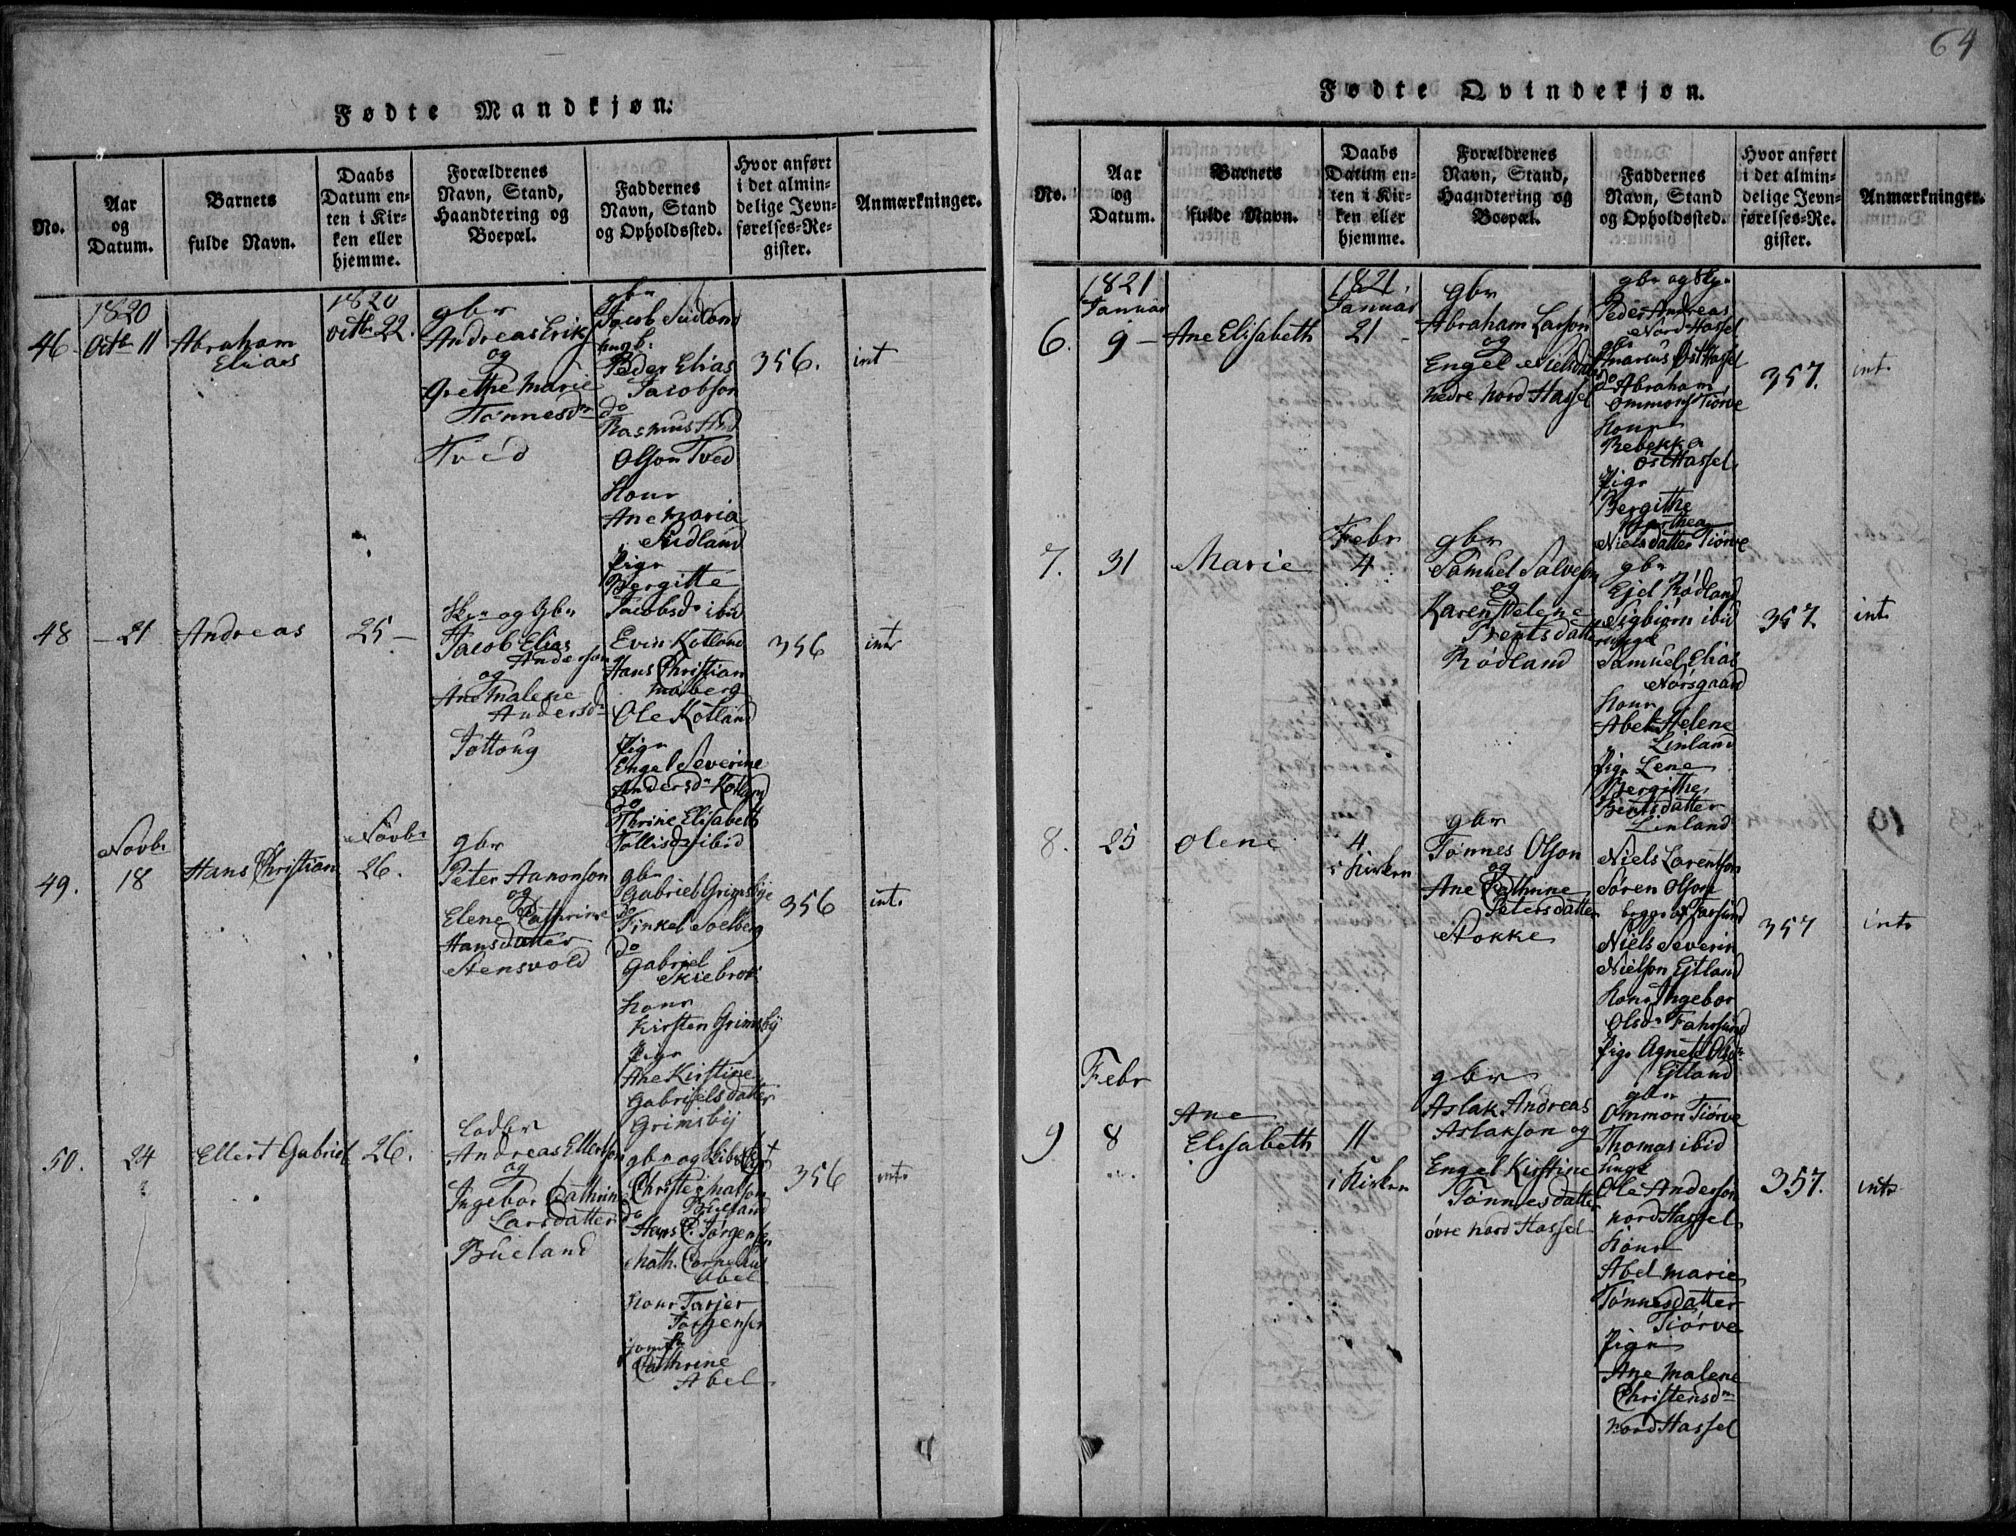 64
Fødte Mandkjøn:
No.
Aar
og
Datum.
Barnets
fulde Navn.
Daabs
Datum en-
ten i Kir-
ken eller
hjemme.
Forældrenes
Navn, Stand,
Haandtering og
Boepæl.
Faddernes
Navn, Stand
og Opholdssted.
Hvor anført
i det almin-
delige Jevn-
førelses-Re-
gister.
Anmærkninger.
46
1820
Octbr 11
Abraham
Elias
1820
Octbr 22.
gbr
Andreas Erikss
og
Grethe Marie
Tønnesdr
Tved
gbr
Jacob Sudland
ungk:
Peder Elias
Jacobson
do
Rasmus
Olson Tved
Konr
Ane Maria
Sudland
Pigr
Bergitte
Jacobsdr ibid
356.
int
48
21
Andreas
25
og Gbr
Jacob Elias
Anderson
og
Ane Malene
Andersdr
Jottoug
Evin Kotland
Hans Christian
Møberg
Ole Kotland
Pigr
Engel Severine
Andersdr Kotland
do
Thrine Elisabeth
Tollisdr ibid
356
intr
49.
Novbr
18
Hans Christian
Novbr
26.
gbr
Peter Aanonson
og
Elene Cathrine
Hansdatter
Stensvold
gbr
Gabriel Grimsbye
do
Tinkel Soelberg
do
Gabriel
Skiebrok
Konr
Kirsten Grimsby
Pigr
Ane Kirstine
Gabrielsdatter
Grimsbÿ
356
int.
50.
24
Ellert Gabriel
26.
Andreas Ellertson
og
Ingebor Cathrine
Larsdatter
Bueland
gbr og
Christen
Bueland
do
Hans C. Jørgensen
Math. Cornelius
Abel
Konr Tarjer
Jørgensen
jomfr
Cathrine
Abel
356
int.
Fødte Qvindekjøn.
No.
Aar
og
Datum.
Barnets
fulde Navn.
Daabs
Datum en-
ten i Kir-
ken eller
hjemme.
Forældrenes
Navn, Stand,
Haandtering og
Boepæl.
Faddernes
Navn, Stand
og Opholdssted.
Hvor anført
i det almin-
delige Jevn-
førelses-Re-
gister.
Anmærkninger.
6.
1821
Januar
9
Ane Elisabeth
1821
Januar
21
gbr
Abraham Larson
og
Engel Nielsdatter
nedre Nord Hassel
gbr og
Peder Andreas
Nord Hassel
gbr
Marcus Øst Hassel
do Abraham
Ommons Tiørve
Konr
Rebekka
Øst Hassel
Pigr
Bergithe
Marthea
Nielsdatter Tiørve
357.
int.
7.
31
Marie
Febr
4
gbr
Samuel Salveson
og
Karen Helene
Bentsdatter
Rødland
gbr
Ejel Rødland
Sigbiørn ibid
ungk
Samuel Elias
Norsgaard
Konr
Abel Helene
Linland
Pigr Lene
Bergithe
Bentsdatter
Linland
357.
int.
8.
25
Olene
4
i Kirken
gbr
Tønnes Olson
og
Ane Cathrine
Petersdatter
Stokke
Niels Larentson
Søren Olson
begge af Farsund
Niels Severin
Nielson Ejtland
Konr Ingebor
Olsdr Fahrsund
Pigr Agnete Olsdr
Ejtland
357
intr
9
Febr
8
Ane
Elisabeth
11
i Kirken
gbr
Aslak Andreas
Aslakson og
Engel Kirstine
Tønnesdatter
øvre Nord Hassel
gbr
Ommon Tiørve
Thomas ibid
Ungk
Ole Anderson
Nord Hassel
Konr
Abel Marie
Tønnesdatter
Tiørve
Pigr
Ane Malene
Christensdr
Nord Hassel
357.
intr